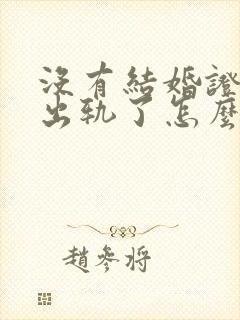 沒有結婚證
出軌了怎麼
趙參將